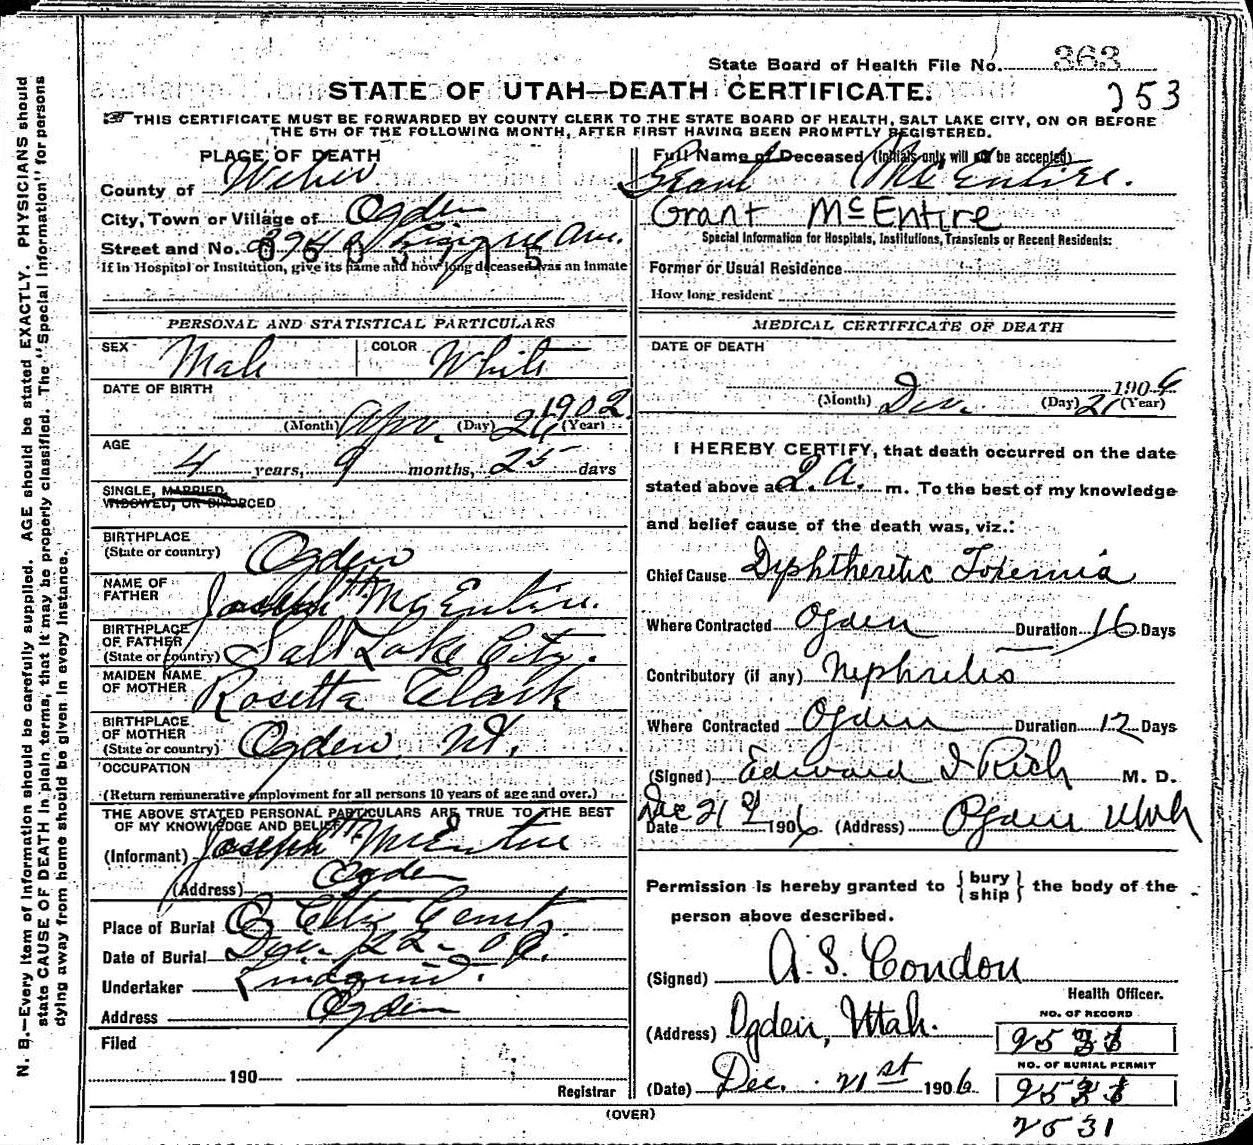 State Board of Health File No. 363
STATE OF UTAH—DEATH CERTIFICATE.
253
☞THIS CERTIFICATE MUST BE FORWARDED BY COUNTY CLERK TO THE STATE BOARD OF HEALTH, SALT LAKE CITY, ON OR BEFORE
THE 5TH OF THE FOLLOWING MONTH, AFTER FIRST HAVING BEEN PROMPTLY REGISTERED.
PLACE OF DEATH
County of Weber
City, Town or Village of Ogden
Street and No. Ave.
If in Hospital or Institution, give its name and how long deceased was an inmate
PERSONAL AND STATISTICAL PARTICULARS
SEX Male COLOR White
DATE OF BIRTH
(Month) Apr. (Day) 26 1902 (Year)
AGE
4 years, 9 months, 25 days
SINGLE, MARRIED,
WIDOWED, OR DIVORCED
BIRTHPLACE
(State or country) Ogden
NAME OF
FATHER Joseph H McEntire.
BIRTHPLACE
OF FATHER
(State or country) Salt Lake City.
MAIDEN NAME
OF MOTHER Rosetta Clark
BIRTHPLACE
OF MOTHER
(State or country) Ogden, Ut.
OCCUPATION
(Return remunerative employment for all persons 10 years of age and over.)
THE ABOVE STATED PERSONAL PARTICULARS ARE TRUE TO THE BEST
OF MY KNOWLEDGE AND BELIEF
(Informant) Joseph H McEntire
(Address) Ogden
Place of Burial O. City Cemt.
Date of Burial Dec. 22-06.
Undertaker Lindquist.
Address Ogden
Filed
190
Registrar
Full Name of Deceased (Initials only will not be accepted)
Grant McEntire.
Grant McEntire
Special Information for Hospitals, Institutions, Transients or Recent Residents:
Former or Usual Residence
How long resident
MEDICAL CERTIFICATE OF DEATH
DATE OF DEATH
1906
(Month) Dec. (Day) 21 (Year)
I HEREBY CERTIFY, that death occurred on the date
stated above at 2. A. m. To the best of my knowledge
and belief cause of the death was, viz.:
Chief Cause Dyphtheretic Toxemia
Where Contracted Ogden Duration 16 Days
Contributory (if any) Nephritis
Where Contracted Ogden Duration 12 Days
(Signed) Edward I Rich M. D.
Date Dec 21 1906 (Address) Ogden Utah
Permission is hereby granted to { bury ship } the body of the
person above described.
(Signed) A. S. Condon
Health Officer.
(Address) Ogden, Utah.
NO. OF RECORD
(Date) Dec. 21st 1906
NO. OF BURIAL PERMIT
2531
(OVER)
N. B.—Every item of information should be carefully supplied. AGE should be stated EXACTLY. PHYSICIANS should
state CAUSE OF DEATH in plain terms, that it may be properly classified. The "Special Information" for persons
dying away from home should be given in every instance.